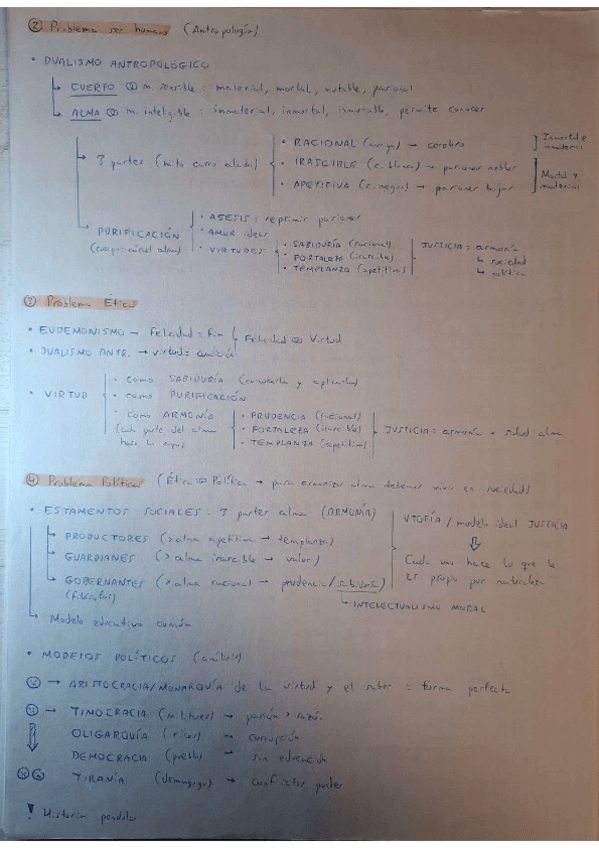 ② Problema ser humano (Antropología)
• DUALISMO ANTROPOLÓGICO
↳ CUERPO m. sensible : material, mortal, mutable, pasional
↳ ALMA m. inteligible : inmaterial, inmortal, inmutable, permite conocer
↳ 3 partes (mito carro alado)
• RACIONAL (auriga) → cerebro
• IRASCIBLE (c. blanco) → pasiones nobles
• APETITIVA (c. negro) → pasiones bajas
Inmortal e inmaterial
Mortal y material
↳ PURIFICACIÓN
• ASCESIS : reprimir pasiones
• AMOR ideas
• VIRTUDES
• SABIDURÍA (racional)
• FORTALEZA (irascible)
• TEMPLANZA (apetitiva)
JUSTICIA : armonía
↳ sociedad
↳ política
③ Problema Ético
• EUDEMONISMO → Felicidad = Fin
Felicidad Virtud
• DUALISMO ANTR. → virtud =
• VIRTUD
• como SABIDURÍA (conocerla y aplicarla)
• como PURIFICACIÓN
• como ARMONÍA
(cada parte del alma
hace lo suyo)
• PRUDENCIA (racional)
• FORTALEZA (irascible)
• TEMPLANZA (apetitiva)
JUSTICIA : armonía = salud alma
④ Problema Político (Ética Política → para armonizar alma debemos vivir en sociedad)
• ESTAMENTOS SOCIALES = 3 partes alma (ARMONÍA)
↳ PRODUCTORES (> alma apetitiva → templanza)
↳ GUARDIANES (> alma irascible → valor)
↳ GOBERNANTES (> alma racional → prudencia/sabiduría)
(filósofos)
↳ INTELECTUALISMO MORAL
UTOPÍA / modelo ideal JUSTICIA
⇓
Cada uno hace lo que le
es propio por naturaleza
↳ Modelo educativo común
• MODELOS POLÍTICOS (análisis)
→ ARISTOCRACIA/MONARQUÍA de la virtud y el saber : forma perfecta
→ TIMOCRACIA (militares) → pasión > razón
OLIGARQUÍA (ricos) → corrupción
DEMOCRACIA (pueblo) → sin educación
TIRANÍA (demagogo) → conflictos poder
! Historia pendular